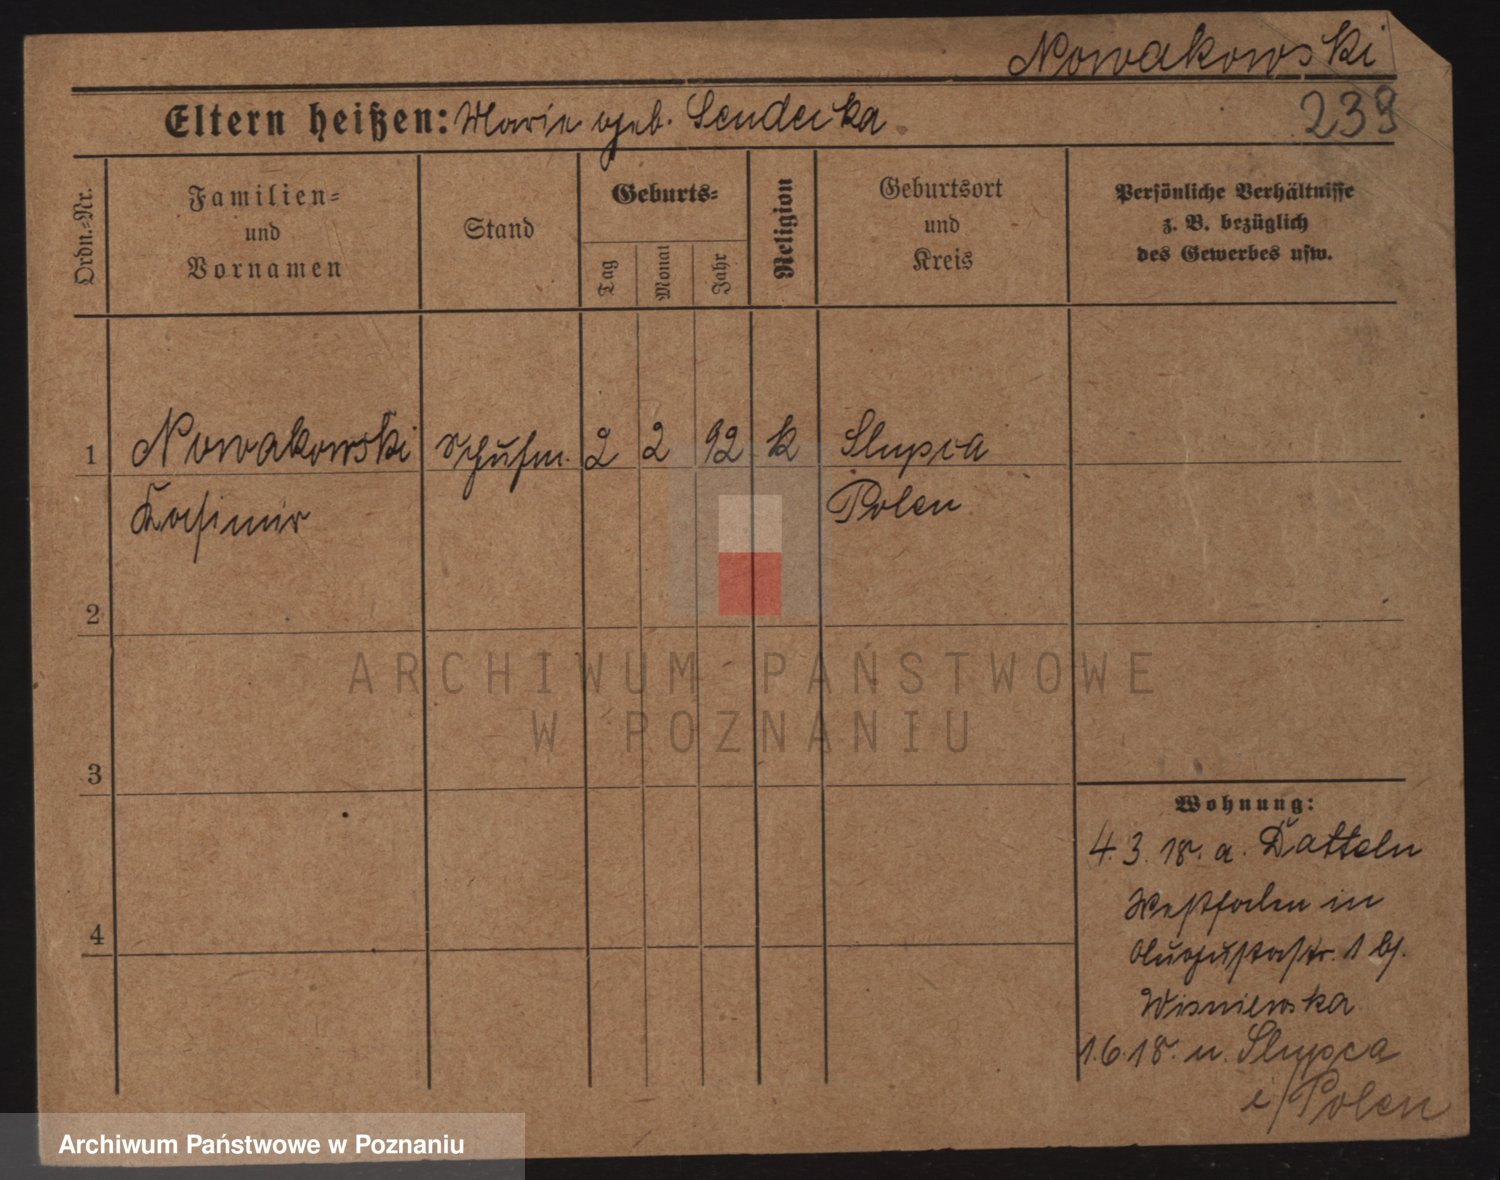 Nowakowski
239
Eltern heißen: Marie geb. Sendecka
Ordn.-Nr.
Familien-
und
Vornamen
Stand
Geburts-
Tag
Monat
Jahr
Religion
Geburtsort
und
Kreis
Persönliche Verhältnisse
z. B. bezüglich
des Gewerbes usw.
1 Nowakowski Schuhm. 2 2 92 k Slupca
Kasimir Polen
2
ARCHIWUM PAŃSTWOWE
W POZNANIU
3
Wohnung:
4.3.18. a. Datteln
Westfalen in
4
Augustastr. 1 bj.
Wisniewska
1.6.18. n. Slupca
i/Polen
Archiwum Państwowe w Poznaniu